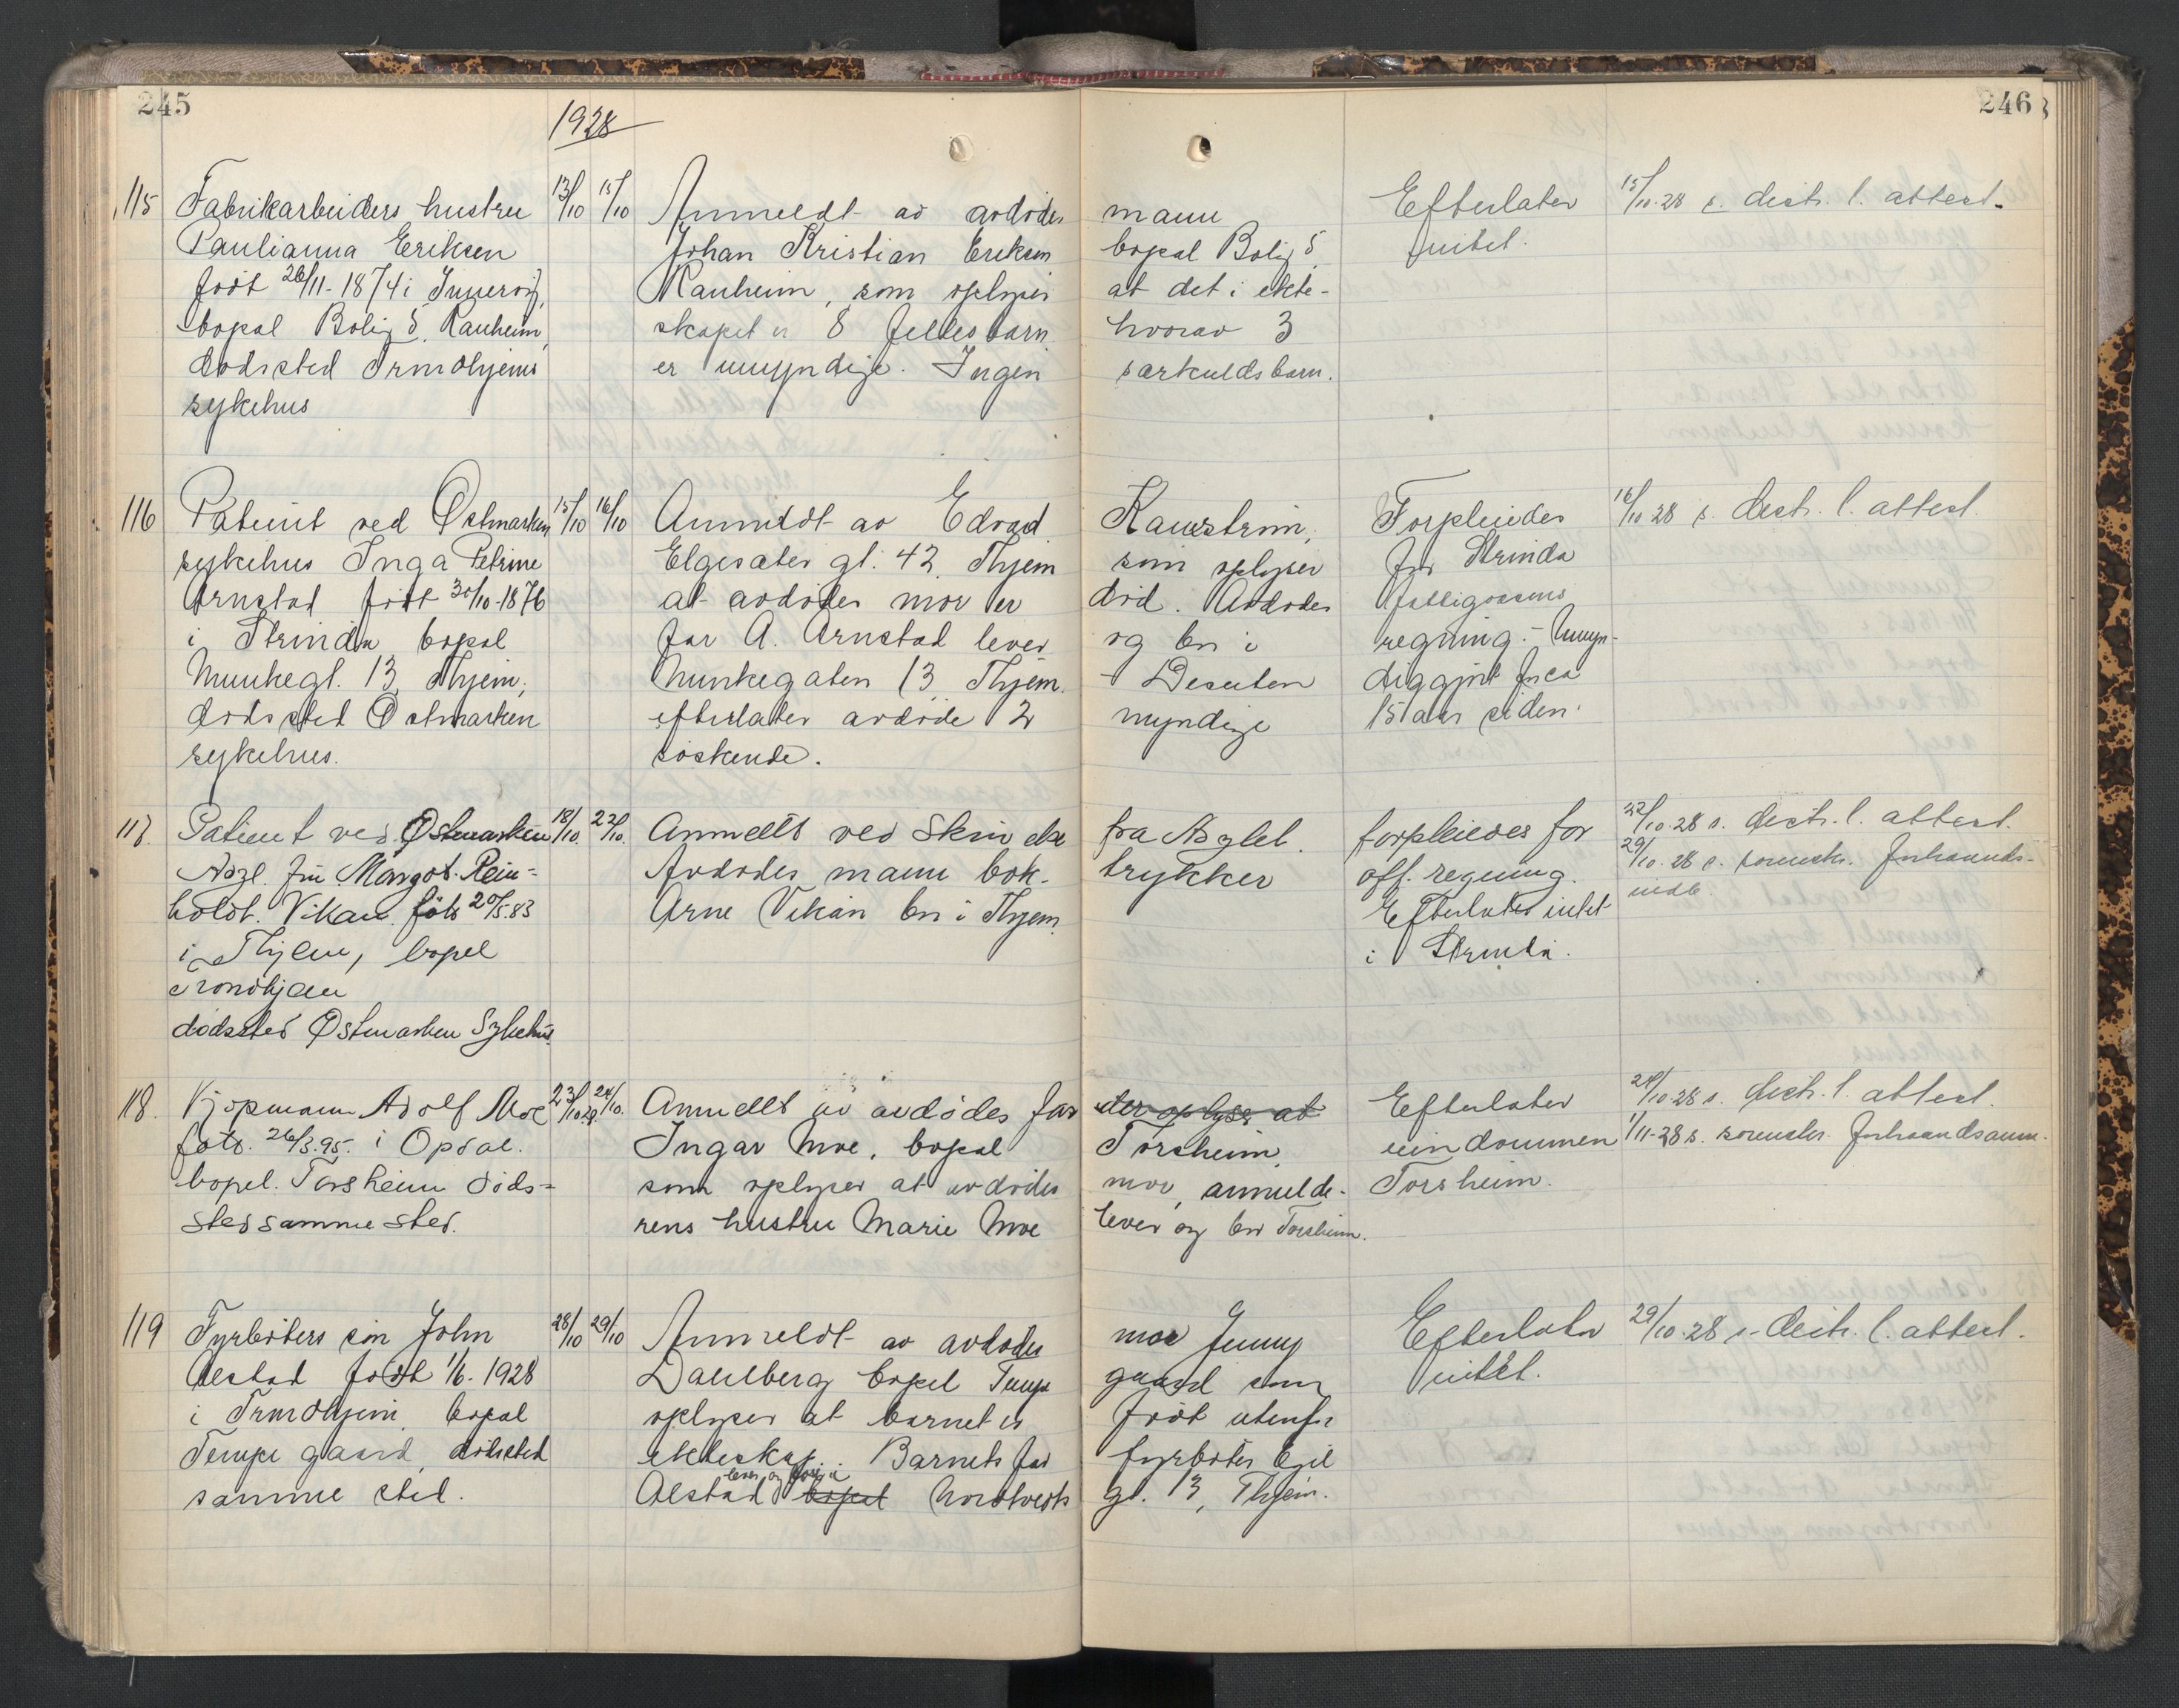 245
246
1928
115 Fabrikarbeiders hustru 13/10 15/10 Anmeldt av avdødes mann Efterlater 15/10.28 s. distr. l. attest.
Paulianna Eriksen Johan Kristian Eriksen bopæl Bolig 5, intet.
født 26/11-1874 i Inderøy, Ranheim, som oplyser at det i ekte-
bopæl Bolig 5, Ranheim, skapet er 8 fellesbarn hvorav 3
dødssted Trondhjems er umyndige. Ingen særkuldsbarn.
sykehus
116 Patient ved Østmarken 15/10 16/10 Anmeldt av Edvard Forpleiedes 16/10 28 s. distr. l. attest.
sykehus Inga Petrine Elgesæter gt. 42, Thjem som oplyser for Strinda
Arnstad født 30/10-1876 at avdødes mor er død. Avdødes fattigvæsens
i Strinda bopæl far A. Arnstad lever og bor i regning. - Umyn-
Munkegt. 13 Thjem, Munkegaten 13, Thjem. - Desuten diggjort for ca
dødssted Østmarken efterlater avdøde 2 myndige 15 aar siden.
sykehus. søskende.
117. Patient ved Østmarken 18/10. 22/10. Anmeldt ved Skriv fra Asylet. forpleiedes for 22/10.28 s. distr. l. attest.
Asyl. fru Margot Rein- Avdødes mann bok- trykker off. regning. 29/10.28 s. sorenskr. forhaands-
holdt Vikan født 20/5.83 Arne Vikan bor i Thjem. Efterlater intet indb.
i Thjem, bopel i Strinda.
Trondhjem
dødssted Østmarken Sykehus.
118. Kjøpmann Adolf Moe 23/10.28. 24/10. Anmeldt av avdødes far der oplyser at Efterlater 24/10.28 s. distr. l. attest.
født. 26/3.95. i Opdal. Ingar Moe, bopæl Torsheim, eiendommen 1/11-28 s. sorenskr. forhaandsanm.
bopel. Torsheim døds- som oplyser at avdødes mor, anmelde- Torsheim.
sted samme sted. rens hustru Marie Moe lever og bor Torsheim.
119 Fyrbøters søn John 28/10 29/10 Anmeldt av avdødes mor Jenny Efterlater 29/10.28 s. distr. l. attest.
Alstad født 1/6.1928 Dahlberg bopel Tempe gaard som intet.
i Trondhjem, bopæl oplyser at barnet er født utenfor
Tempe gaard, dødssted ekteskap. Barnets far fyrbøter Egil
samme sted. Alstad lever og bor i bopæl Nordtvedts gt. 13, Thjem.